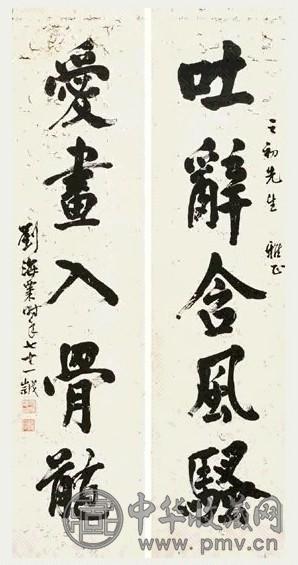 之初先生 雅正
吐辭含風騷
愛畫入骨髓
劉海粟時年七十一歲
中华收藏网
www.pmv.cn